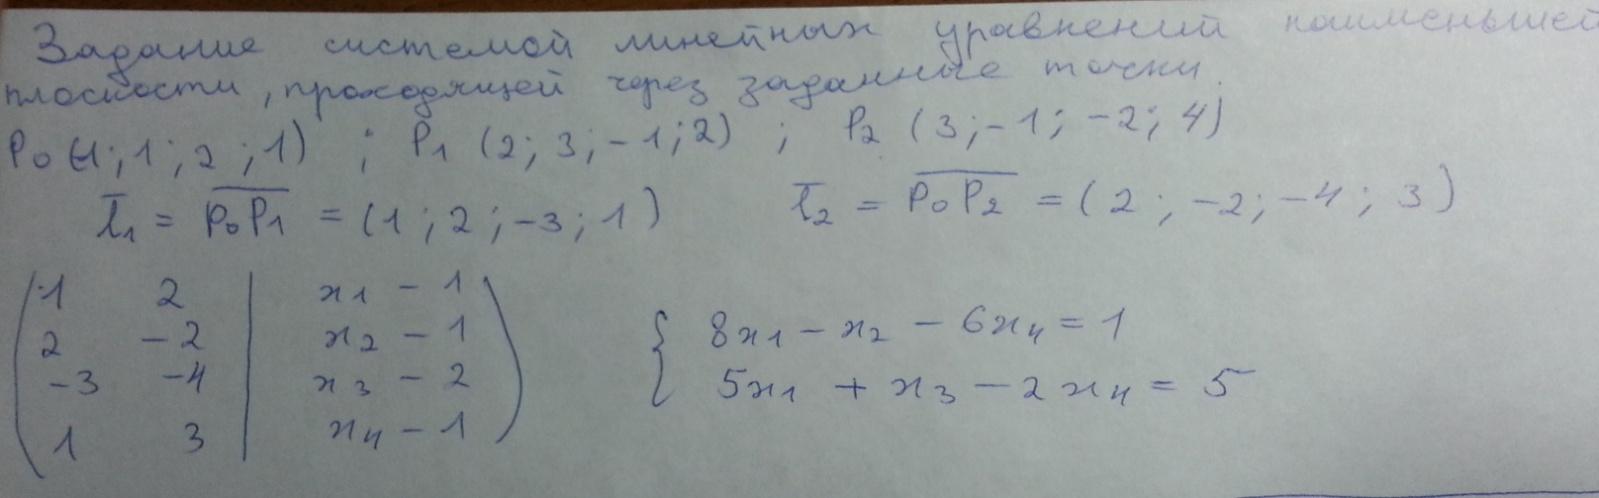 Задание системой линейных уравнений наименьшей
плоскости, проходящей через заданные точки.
P₀(1; 1; 2; 1) ; P₁ (2; 3; -1; 2) ; P₂ (3; -1; -2; 4)
l̄₁ = P₀P₁ = (1; 2; -3; 1) l̄₂ = P₀P₂ = (2; -2; -4; 3)
1 2 | x₁ - 1
2 -2 | x₂ - 1 { 8x₁ - x₂ - 6x₄ = 1
-3 -4 | x₃ - 2 5x₁ + x₃ - 2x₄ = 5
1 3 | x₄ - 1